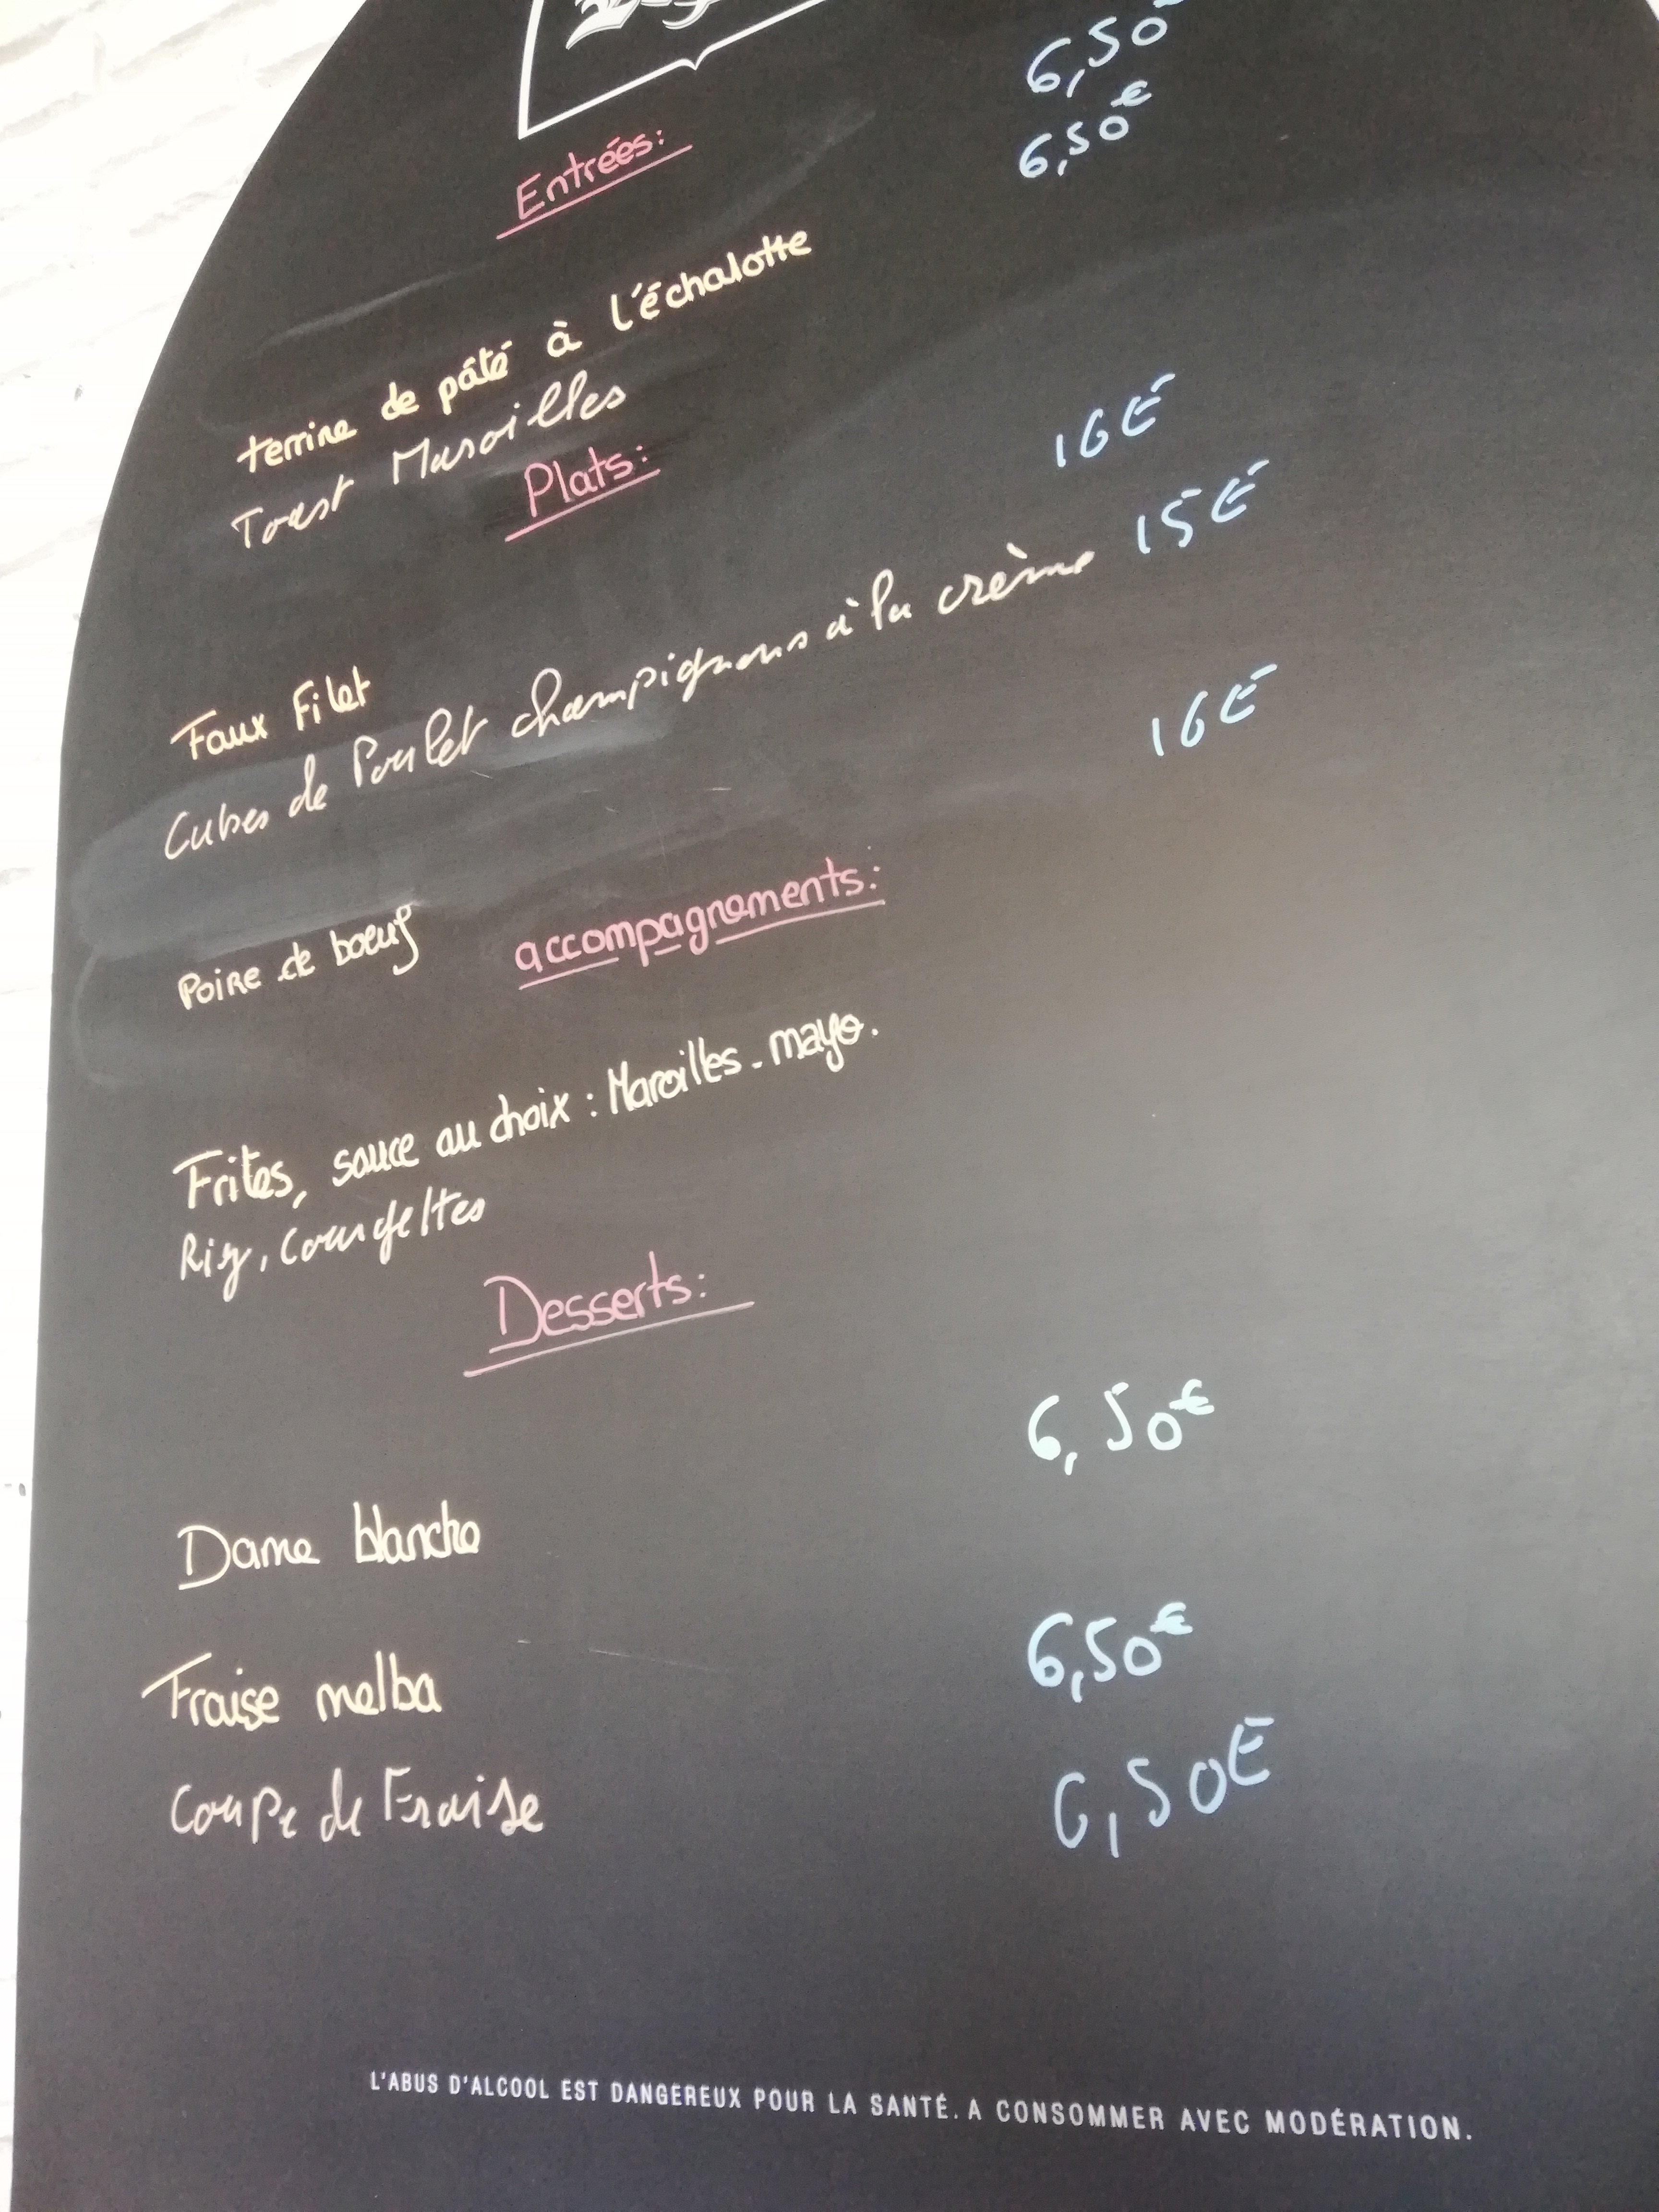 Entrées:
terrine de pâté à l'échalotte 6,50€
Toast Maroilles 6,50€
Plats:
Faux Filet 16€
Cubes de Poulet champignons à la crème 15€
Poire de boeuf 16€
accompagnements:
Frites, sauce au choix : Maroilles - mayo.
Riz, Courgettes
Desserts:
Dame blanche 6,50€
Fraise melba 6,50€
Coupe de Fraise 6,50€
L'ABUS D'ALCOOL EST DANGEREUX POUR LA SANTÉ. A CONSOMMER AVEC MODÉRATION.